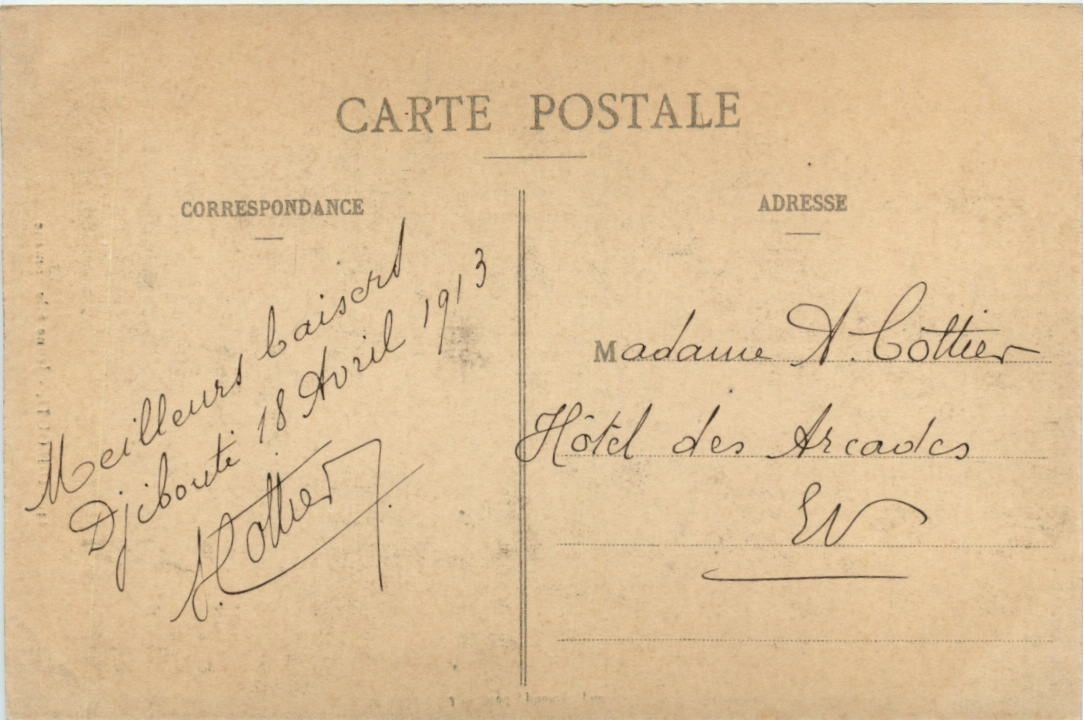 CARTE POSTALE
CORRESPONDANCE
Meilleurs baisers
Djibouti 18 Avril 1913
A. Cottier
ADRESSE
Madame A. Cottier
Hôtel des Arcades
EV